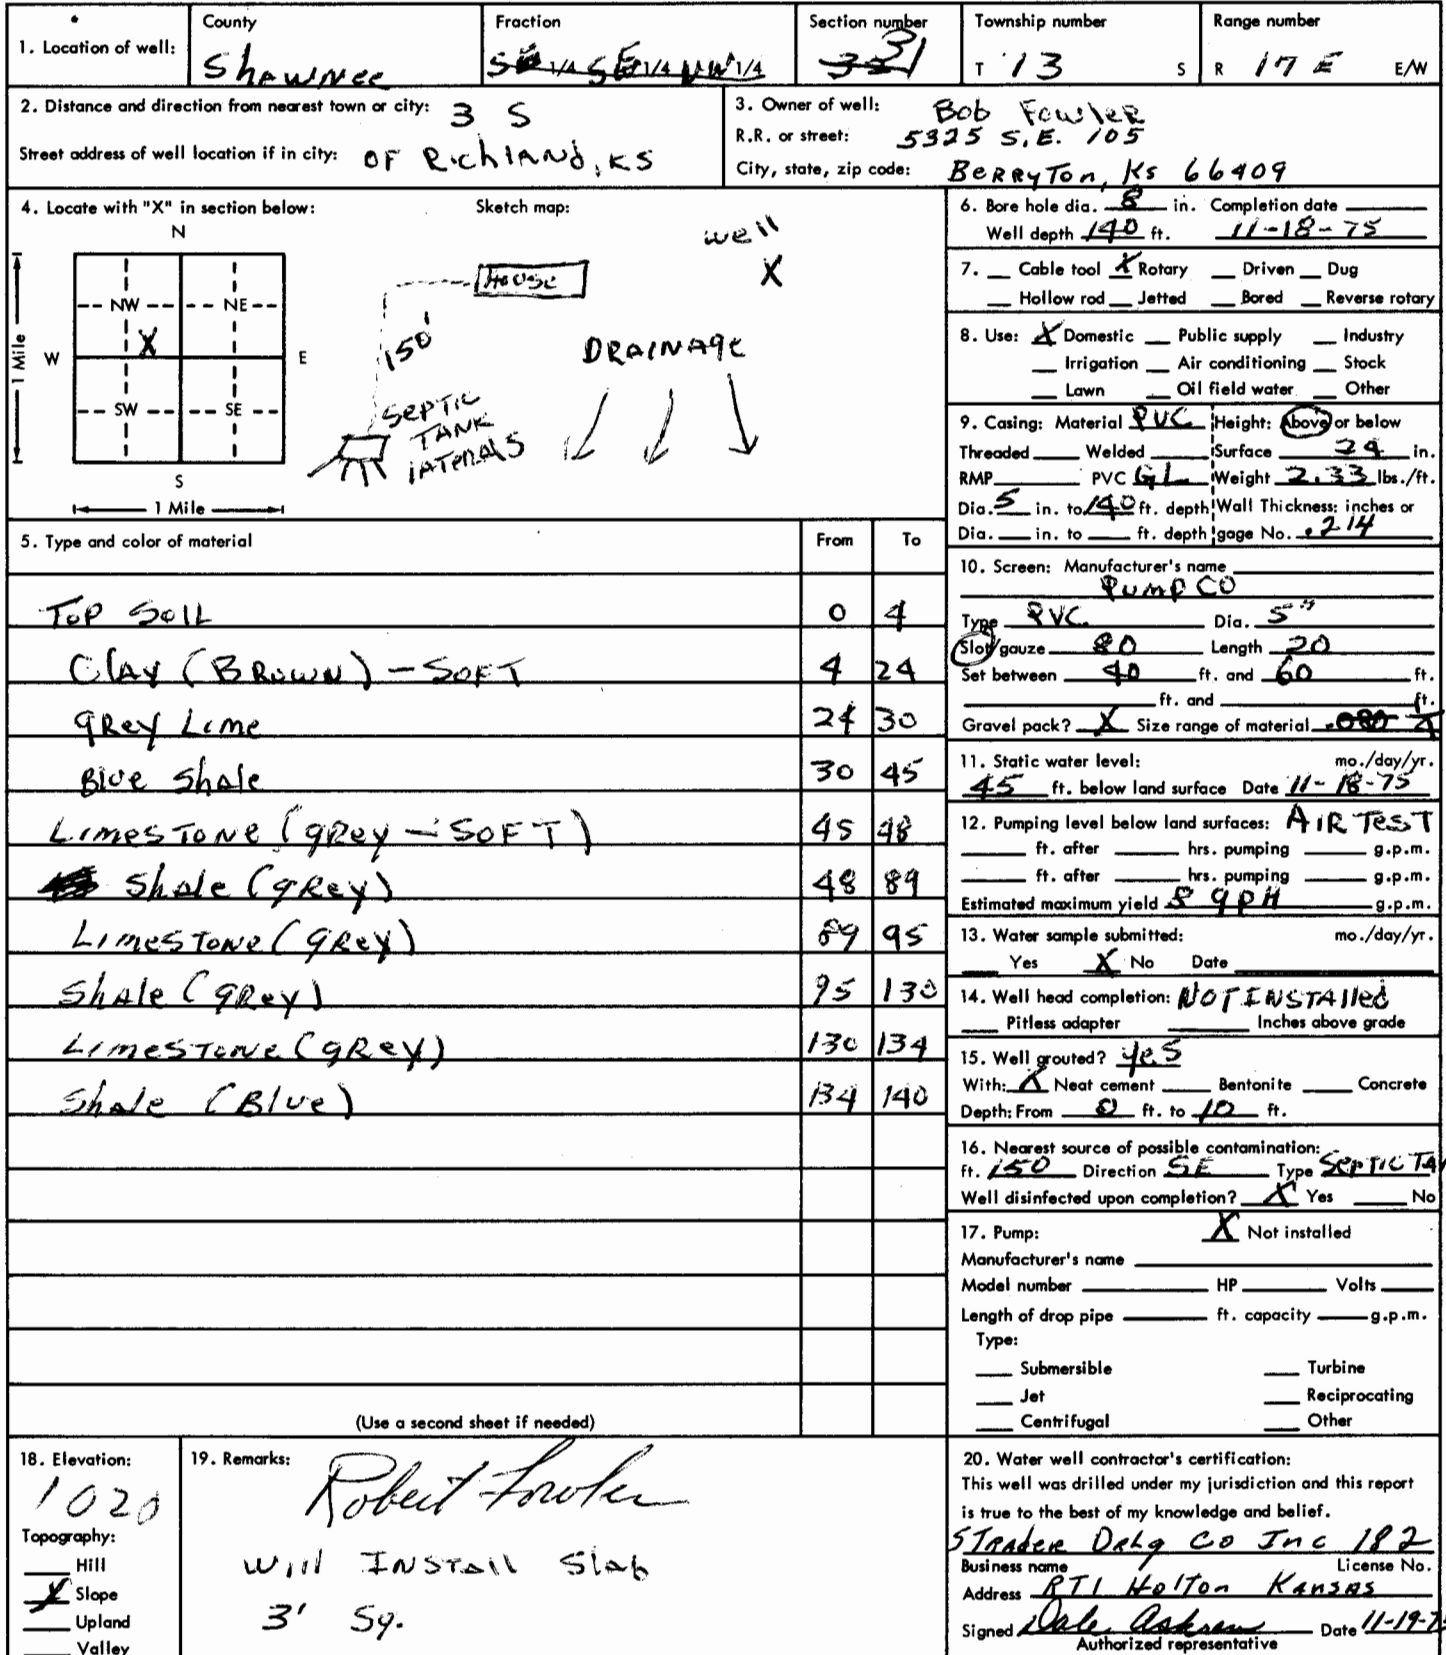 1. Location of well:
County
Shawnee
Fraction
SE 1/4 SE 1/4 NW 1/4
Section number
31
Township number
T 13 S
Range number
R 17 E E/W
2. Distance and direction from nearest town or city: 3 S
Street address of well location if in city: OF RichLAND, KS
3. Owner of well: Bob Fowler
R.R. or street: 5325 S.E. 105
City, state, zip code: BERRYTon, Ks 66409
4. Locate with "X" in section below:
N
NW NE
X
W E
SW SE
S
1 Mile
1 Mile
Sketch map:
well
X
House
150'
DRAINAGE
SEPTIC
TANK
LATERALS
5. Type and color of material From To
Top Soil 0 4
CLAY (BROWN) - SOFT 4 24
GRey Lime 24 30
Blue Shale 30 45
LimesTone (gRey - SOFT) 45 48
Shale (gRey) 48 89
LimesTone (gRey) 89 95
Shale (gRey) 95 130
LimesTone (gRey) 130 134
Shale (Blue) 134 140
(Use a second sheet if needed)
6. Bore hole dia. 8 in. Completion date
Well depth 140 ft. 11-18-75
7. Cable tool X Rotary Driven Dug
Hollow rod Jetted Bored Reverse rotary
8. Use: X Domestic Public supply Industry
Irrigation Air conditioning Stock
Lawn Oil field water Other
9. Casing: Material PVC Height: Above or below
Threaded Welded Surface 24 in.
RMP PVC GL Weight 2.33 lbs./ft.
Dia. 5 in. to 140 ft. depth Wall Thickness: inches or
Dia. in. to ft. depth gage No. .214
10. Screen: Manufacturer's name
PUMP CO
Type PVC Dia. 5"
Slot/gauze 80 Length 20
Set between 40 ft. and 60 ft.
ft. and ft.
Gravel pack? X Size range of material .080
11. Static water level: mo./day/yr.
45 ft. below land surface Date 11-18-75
12. Pumping level below land surfaces: AIR TEST
ft. after hrs. pumping g.p.m.
ft. after hrs. pumping g.p.m.
Estimated maximum yield 8 gpH g.p.m.
13. Water sample submitted: mo./day/yr.
Yes X No Date
14. Well head completion: NOT INSTAlled
Pitless adapter Inches above grade
15. Well grouted? yes
With: X Neat cement Bentonite Concrete
Depth: From 0 ft. to 10 ft.
16. Nearest source of possible contamination:
ft. 150 Direction SE Type SepTIC TAN
Well disinfected upon completion? X Yes No
17. Pump: X Not installed
Manufacturer's name
Model number HP Volts
Length of drop pipe ft. capacity g.p.m.
Type:
Submersible Turbine
Jet Reciprocating
Centrifugal Other
18. Elevation:
1020
Topography:
Hill
X Slope
Upland
Valley
19. Remarks:
Robert Fowler
Will INSTAll Slab
3' Sq.
20. Water well contractor's certification:
This well was drilled under my jurisdiction and this report
is true to the best of my knowledge and belief.
STRADER DRLg Co Inc 182
Business name License No.
Address RT1 HolTon KANSAS
Signed Dale Date 11-19-7
Authorized representative